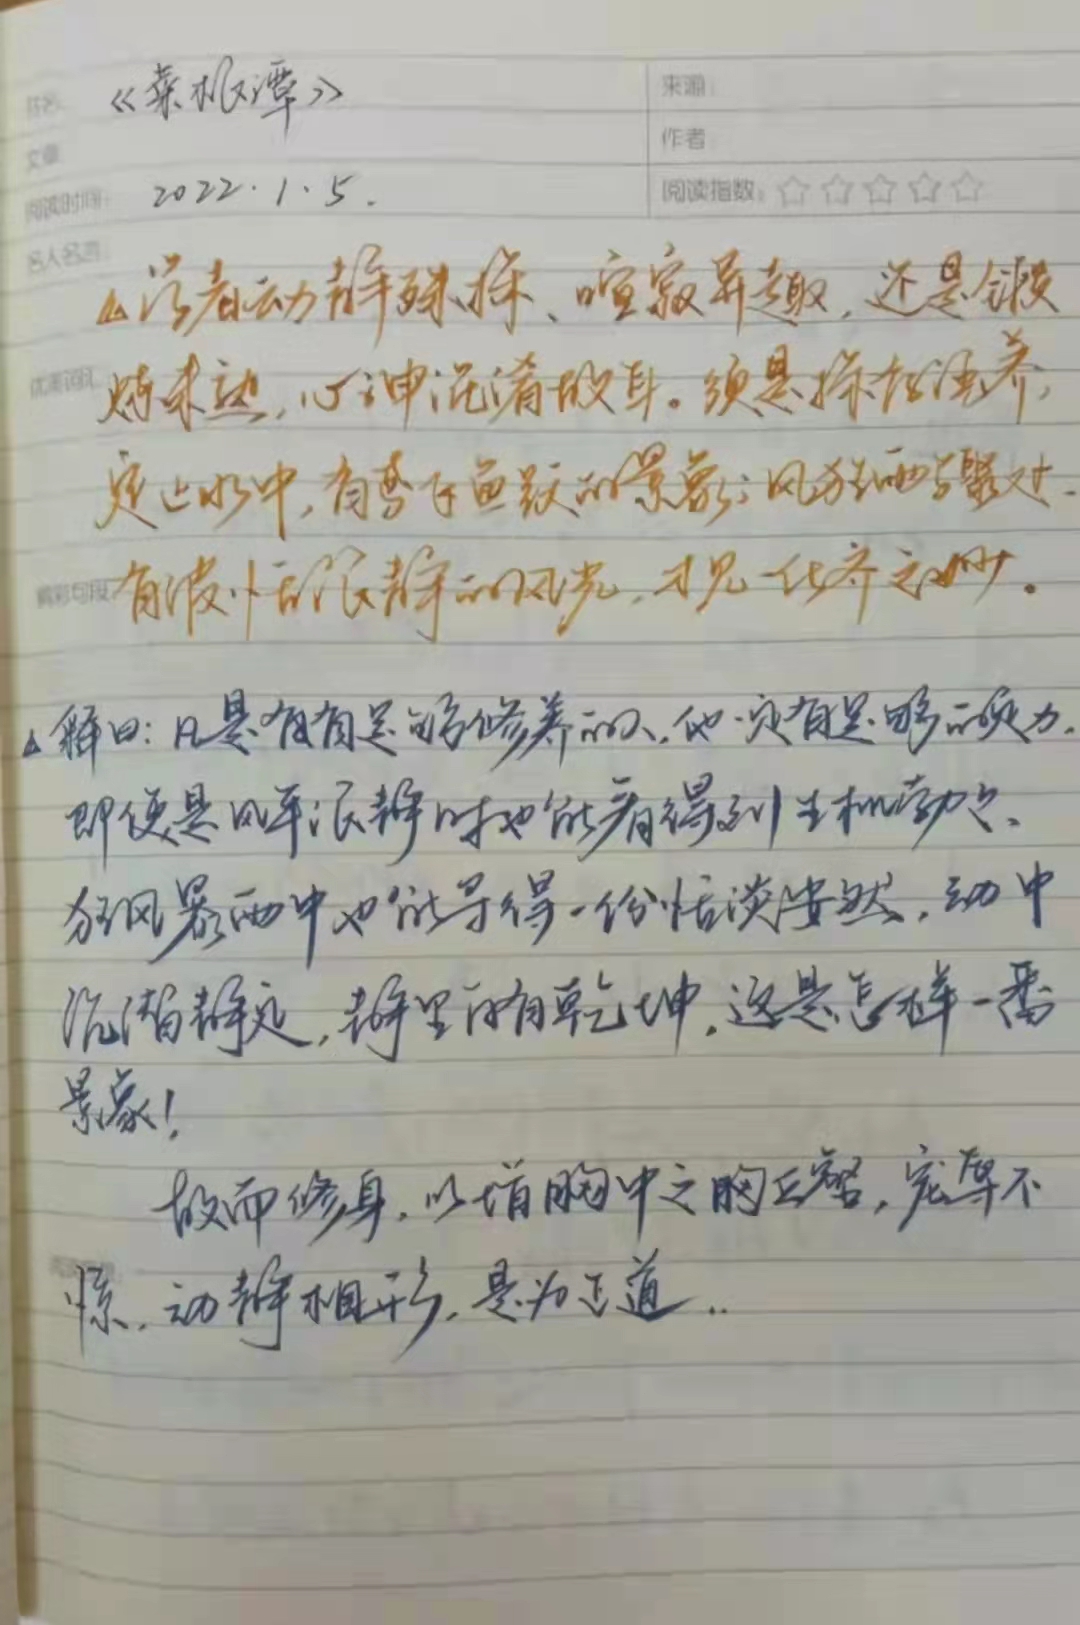 书名: 《菜根谭》 来源:
文章: 作者:
阅读时间: 2022.1.5. 阅读指数:
名人名言:
若者动静殊操、喧寂异趣,还是锻
优美词汇
炼未熟,心神混淆故耳。须是操存涵养,
定止水中,有鸢飞鱼跃的景象;风狂雨骤处.
精彩句段 有波恬浪静的风光,才见一化齐之妙。
释曰:凡是有有足够修养的人,他一定有足够的实力.
即便是风平浪静时也能看得到生机勃勃、
狂风暴雨中也能寻得一份恬淡安然,动中
沉潜静定,静里内有乾坤,这是怎样一番
景象!
故而修身,以增胸中之胸丘壑,宠辱不
惊,动静相形,是为正道..